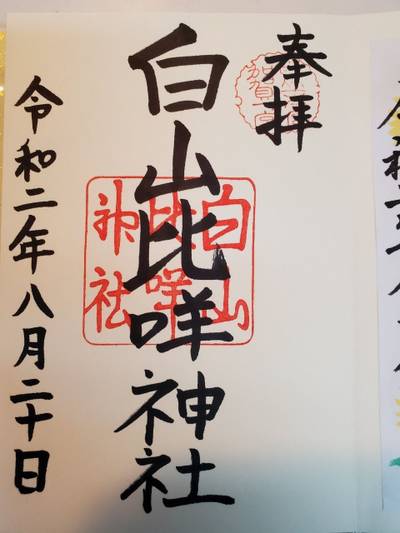 奉拝
白山比咩神社
白山
比咩
神社
令和二年八月二十日